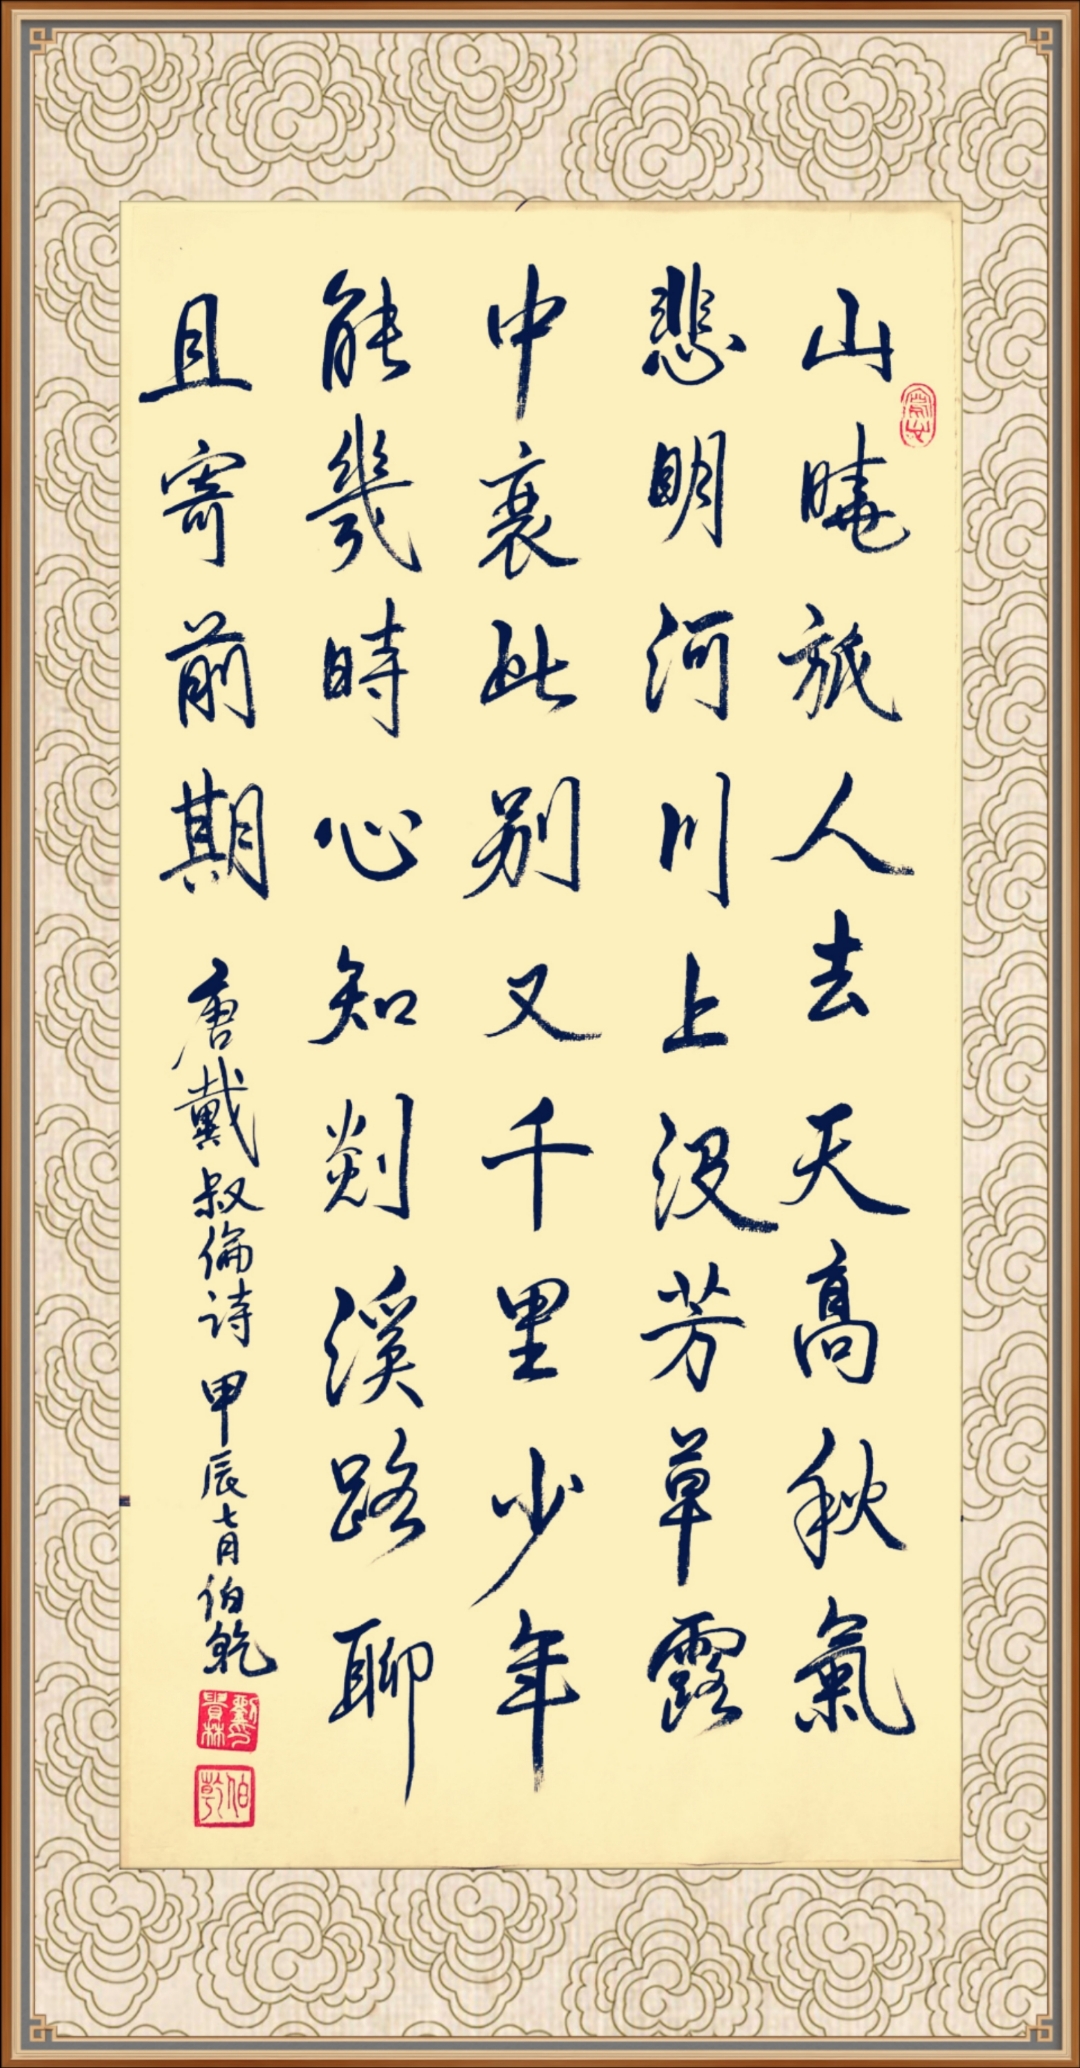 山曉旅人去天高秋氣
悲明河川上没芳草露
中衰此别又千里少年
能幾時心知剡溪路聊
且寄前期
唐戴叔倫诗 甲辰七月伯乾
伯乾